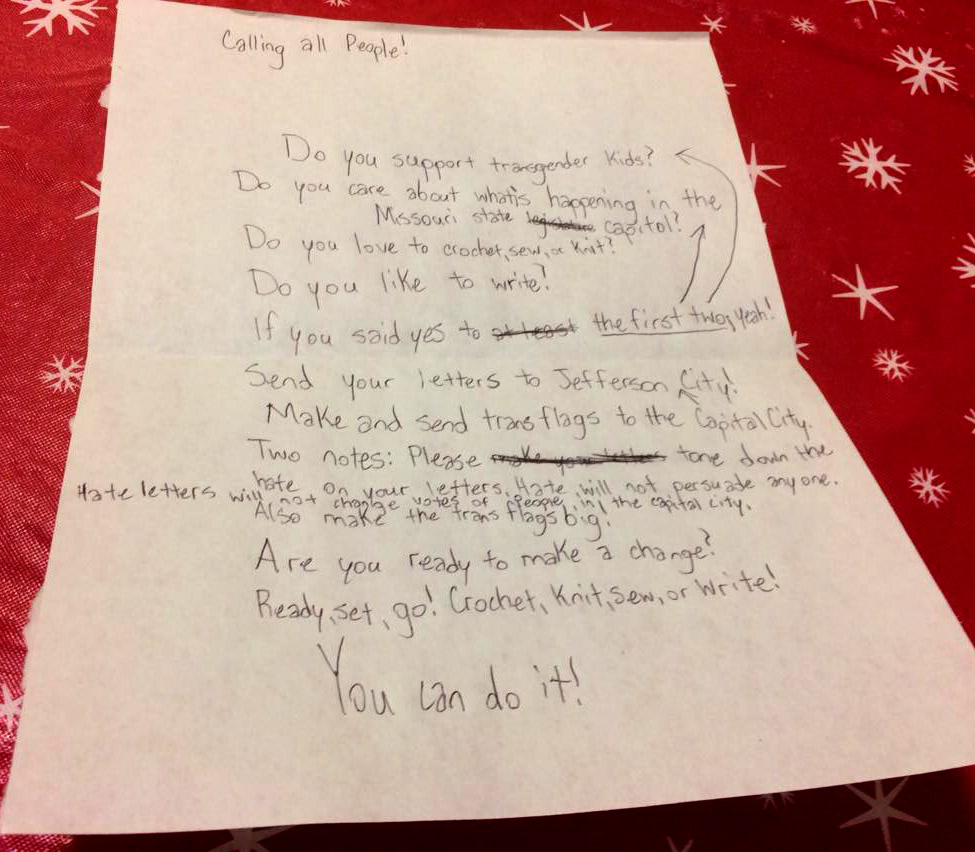 Calling all People!
Do you support transgender kids?
Do you care about what's happening in the
Missouri state legislature capitol?
Do you love to crochet, sew, or knit?
Do you like to write?
If you said yes to at least the first two, yeah!
Send your letters to Jefferson City!
Make and send trans flags to the Capital City.
Two notes: Please make your letters tone down the
hate on your letters. Hate will not persuade anyone.
Hate letters will not change votes of people in the capital city.
Also make the trans flags big.
Are you ready to make a change?
Ready, set, go! Crochet, Knit, Sew, or Write!
You can do it!